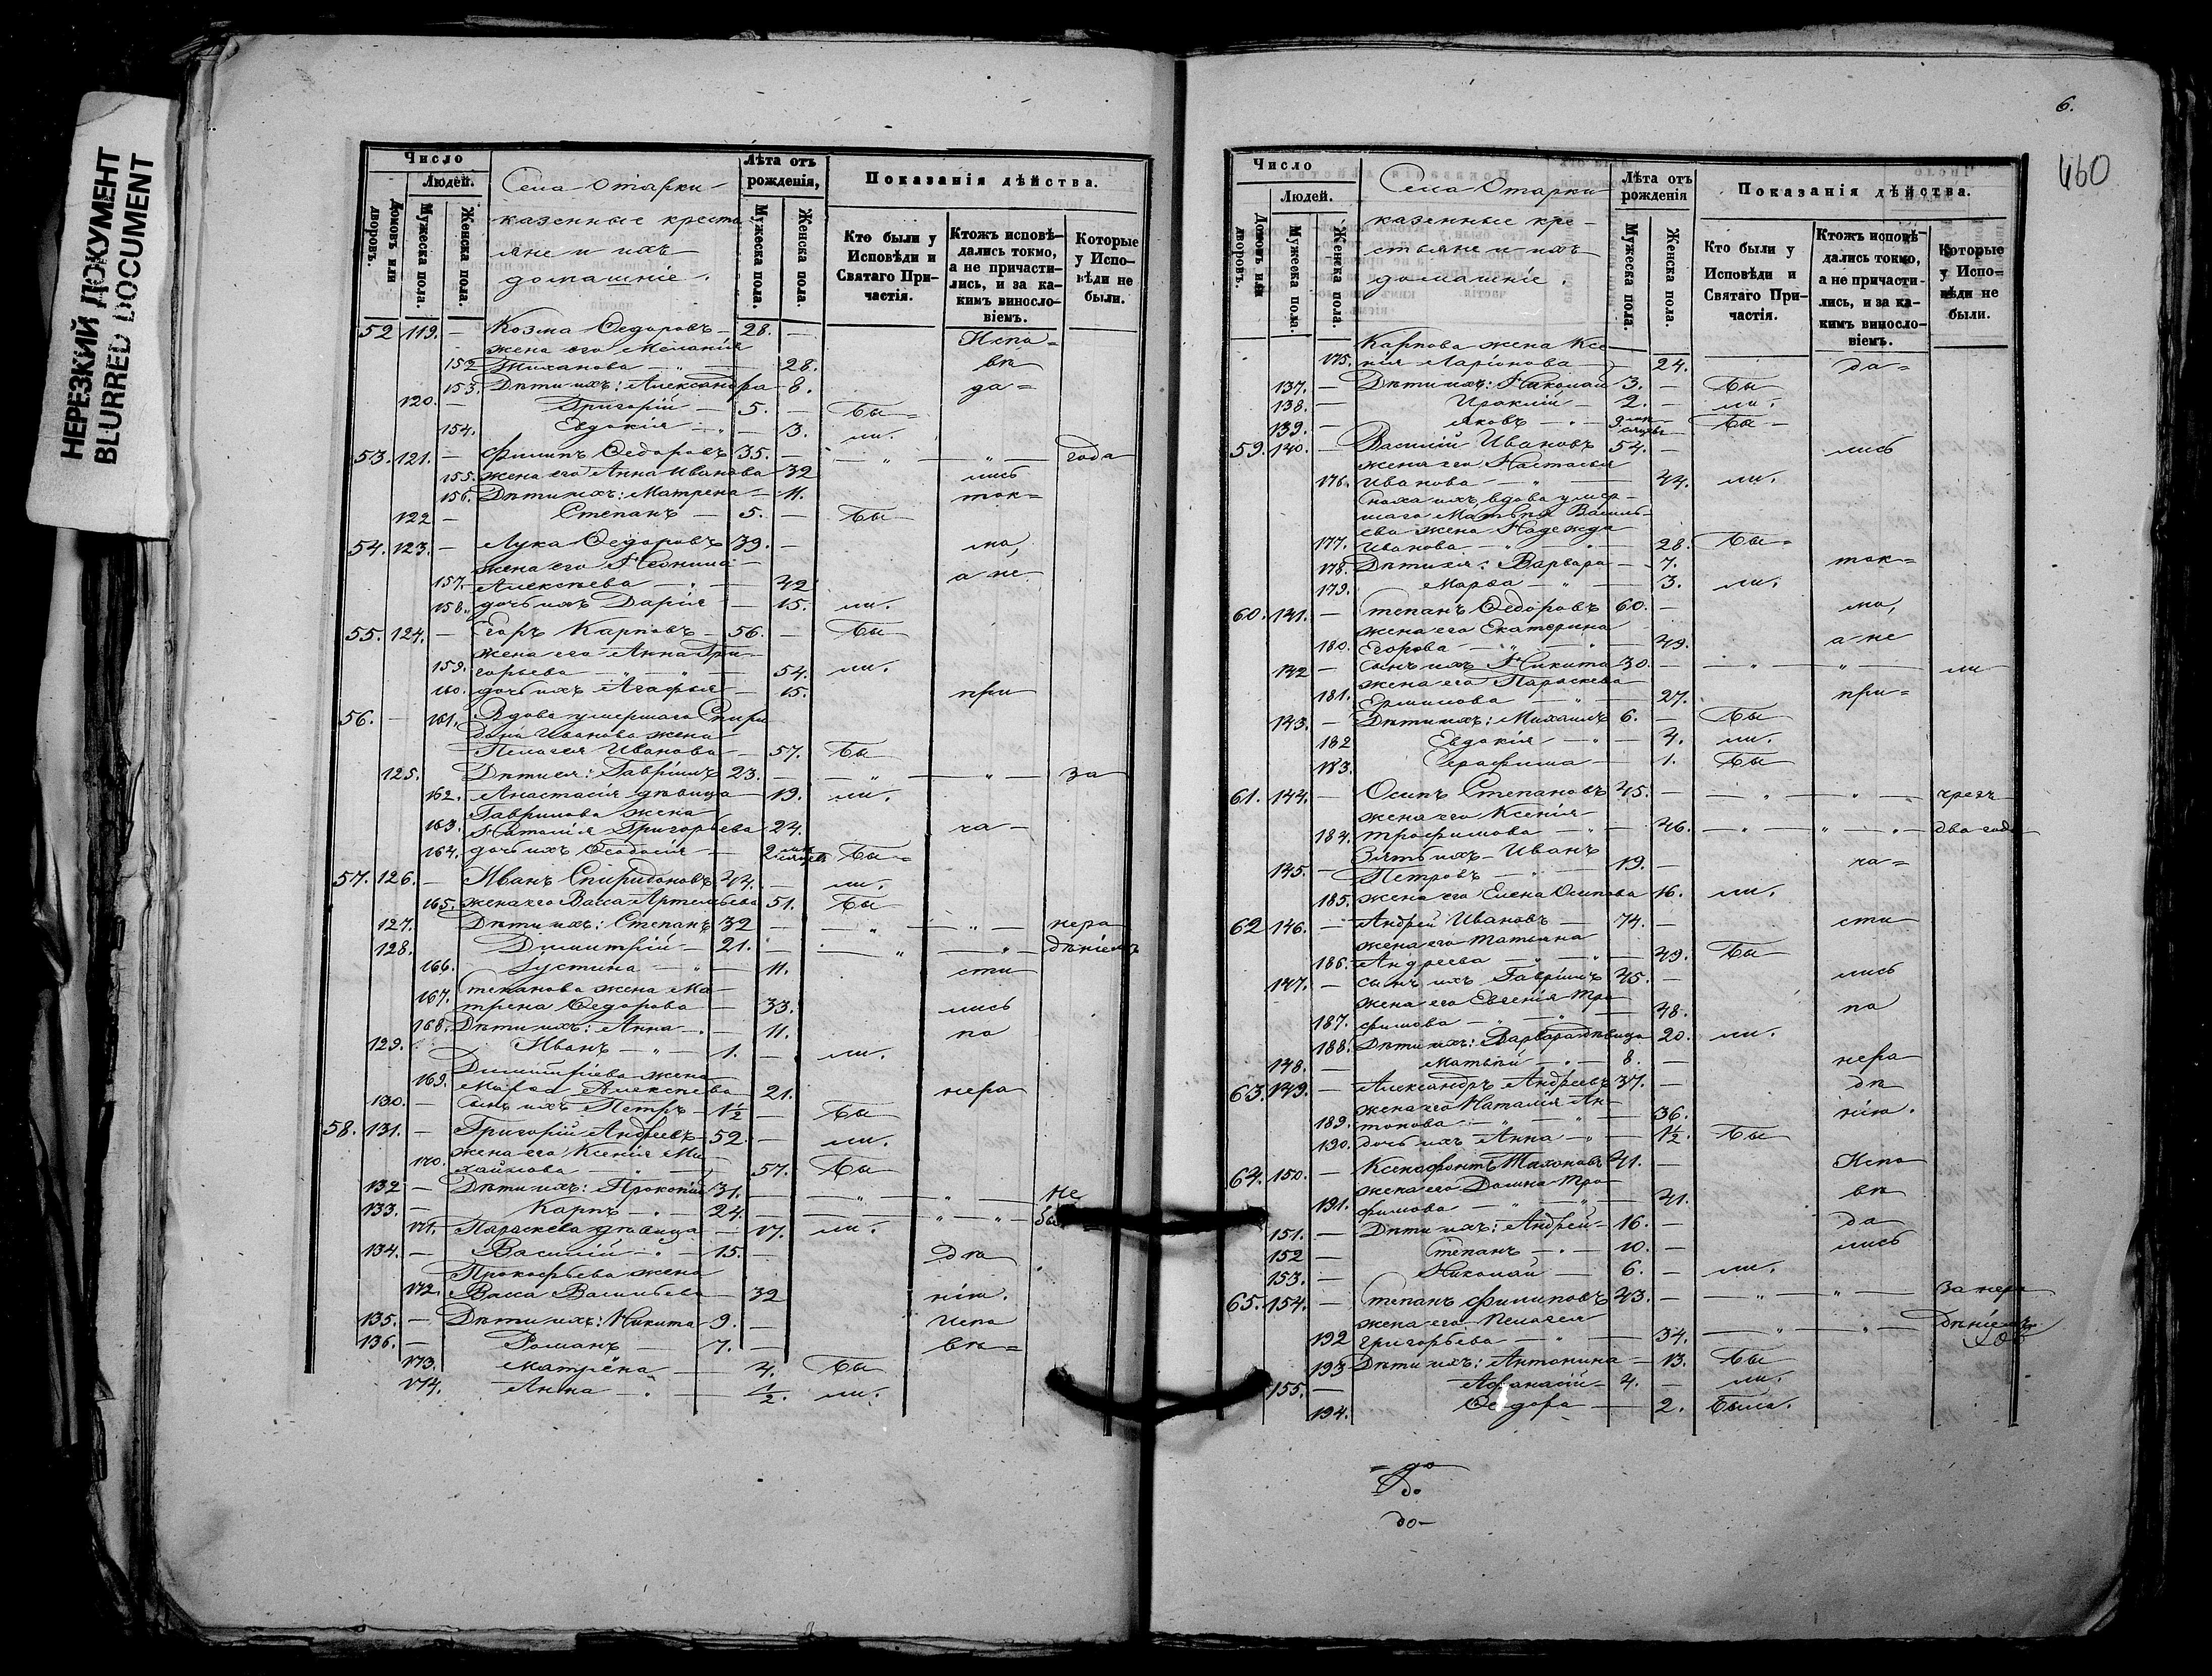 НЕРЕЗКИЙ ДОКУМЕНТ
BLURRED DOCUMENT
Число
Людей.
Домовъ или дворовъ.
Мужеска пола.
Женска пола.
Села Отарки
казенные кресть
яне и ихъ
домашніе.
Лѣта отъ рожденія,
Мужеска пола.
Женска пола.
Показанія дѣйства.
Кто были у Исповѣди и Святаго При-частія.
Ктожъ исповѣ-дались токмо, а не причасти-лись, и за ка-кимъ винос­ло-віемъ.
Которые у Испо-вѣди не были.
52 119. — Козма Ѳедоровъ — 28. — Испо=
жена его Меланія
152 Тиханова — „ — 28. вѣ
153. Дѣти ихъ: Александра — 8. да=
120. — Григорій — 5. — бы=
154. Евдокія — „ — 3. ли.
53. 121. — Филипъ Ѳедоровъ 35. — — „ — „ — года
155. жена его Анна Иванова 32 лись
156. Дѣти ихъ: Матрена — 11. ток=
122 — Степанъ — 5. — бы
54. 123. — Лука Ѳедоровъ 39. — мо,
жена его Неонила
157. Алексѣева — „ — 42 а не
158. дочь ихъ Дарія — 15. ли.
55. 124. — Егоръ Карповъ — 56. — бы
жена его Анна Гри-
159. горьева — „ — „ — 54. ли.
160. дочь ихъ Агафья — 15. при
56. — 161. Вдова умершаго Спири
дона Иванова жена
Пелагея Иванова — 57. бы
125. Дѣти ея: Гавріилъ 23. — — „ — „ — за
162. Анастасія дѣвица — 19. ли.
Гаврилова жена
163. Наталія Григорьева 24. ча-
164. дочь ихъ Ѳеодосія — 2 мѣсяцевъ бы=
57. 126. — Иванъ Спиридоновъ 44. — ли.
165. жена его Васса Артемьева 51. бы
127. Дѣти ихъ: Степанъ 32 — — „ — „ — нера
128. Димитрій — 21. — — „ — „ дѣніемъ
166. Іустина — „ — 11. сти
167. Степанова жена Ма-
трена Ѳедорова — 33. лись
168. Дѣти ихъ: Анна — „ — 11. по
129. — Иванъ — „ — 1. — ли.
Димитріева жена
169. Марѳа Алексѣева 21. нера
130. — сынъ ихъ Петръ — 1½ — бы
58. 131. — Григорій Андреевъ 52. — ли.
жена его Ксенія Ми
170. хайлова — „ — 57. бы
132 — Дѣти ихъ: Прокопій 31. — — „ — „ — не
133. — Карпъ — „ — 24. — — „ — „ — бы
171. Параскева дѣвица — 17. ли.
134. — Василій — „ — 15. — дѣ
Прокофьева жена
172. Васса Васильева — 32 нію.
135. — Дѣти ихъ: Никита 9. — испо
136. — Романъ — 7. — вѣ=
173. Матрёна — 4. бы
174. Анна — „ — ½. ли.
6.
460
Число
Людей.
Домовъ или дворовъ.
Мужеска пола.
Женска пола.
Села Отарки
казенные кре-
стьяне и ихъ
домашніе.
Лѣта отъ рожденія
Мужеска пола.
Женска пола.
Показанія дѣйства.
Кто были у Исповѣди и Святаго При-частія.
Ктожъ исповѣ-дались токмо, а не причасти-лись, и за ка-кимъ виносло-віемъ.
Которые у Испо=вѣди не были.
Карпова жена Ксе
175. нія Ларіонова — 24. да=
137. — Дѣти ихъ: Николай 3. — бы
138. — Ираклій — 2. — ли.
139. — Яковъ — „ — 9 мѣсяцевъ — бы-
59. 140. — Василій Ивановъ 54. — лись
жена его Настасья
176. Иванова — „ — 44. ли.
Сноха ихъ, вдова умер-
шаго Матвѣя Василь-
ева жена Надежда
177. Иванова — „ — „ — 28. бы=
178. Дѣти ея: Варвара — 7. ток=
179. Марѳа — „ — 3. ли.
60. 141. — Степанъ Ѳедоровъ 60. — мо,
жена его Екатерина
180. Егорова — „ — „ — 49. а не
142 — сынъ ихъ Никита 30. — — „ — „ — ли
жена его Параскева
181. Ермилова — „ — 27. при=
143. — Дѣти ихъ: Михаилъ 6. — бы
182 Евдокія — „ — 4. ли.
183. Серафима — 1. бы
61. 144. — Осипъ Степановъ 45. — — „ — „ — чрезъ
жена его Ксенія
184. Трофимова — „ — 46. — „ — „ — „ — два года
Зять ихъ Иванъ
145. — Петровъ — „ — 19. — ча=
185. жена его Елена Осипова 16. ли.
62 146. — Андрей Ивановъ — 74. — сти
жена его Татьяна
186. Андреева — „ — „ — 49. бы
147. — сынъ ихъ Гавріилъ 45. — лись
жена его Евгенія Тро
187. фимова — „ — 48. по
188. Дѣти ихъ: Варвара дѣвица 20. ли.
148. — Матвѣй — „ — 8. — нера
63. 149. — Александръ Андреевъ 37. — дѣ
жена его Наталія Ан-
189. тонова — „ — „ — 36. нію.
190. дочь ихъ Анна — „ — 1½. бы
64. 150. — Ксенофонтъ Тихоновъ 41. — Испо
жена его Домна Тро
191. фимова — „ — „ — 41. вѣ
151. — Дѣти ихъ: Андрей — 16. — да
152 — Степанъ — „ — 10. — лись
153. — Николай — 6. — ли.
65. 154. — Степанъ Филиповъ 43. — — „ — „ — за нера
жена его Пелагея
192 Григорьева — „ — 34. — „ — „ — дѣніемъ
193 Дѣти ихъ: Антонина — 13. бы
155. — Афанасій — 4. — ли.
194. Ѳедора — 2. была.
до
до-